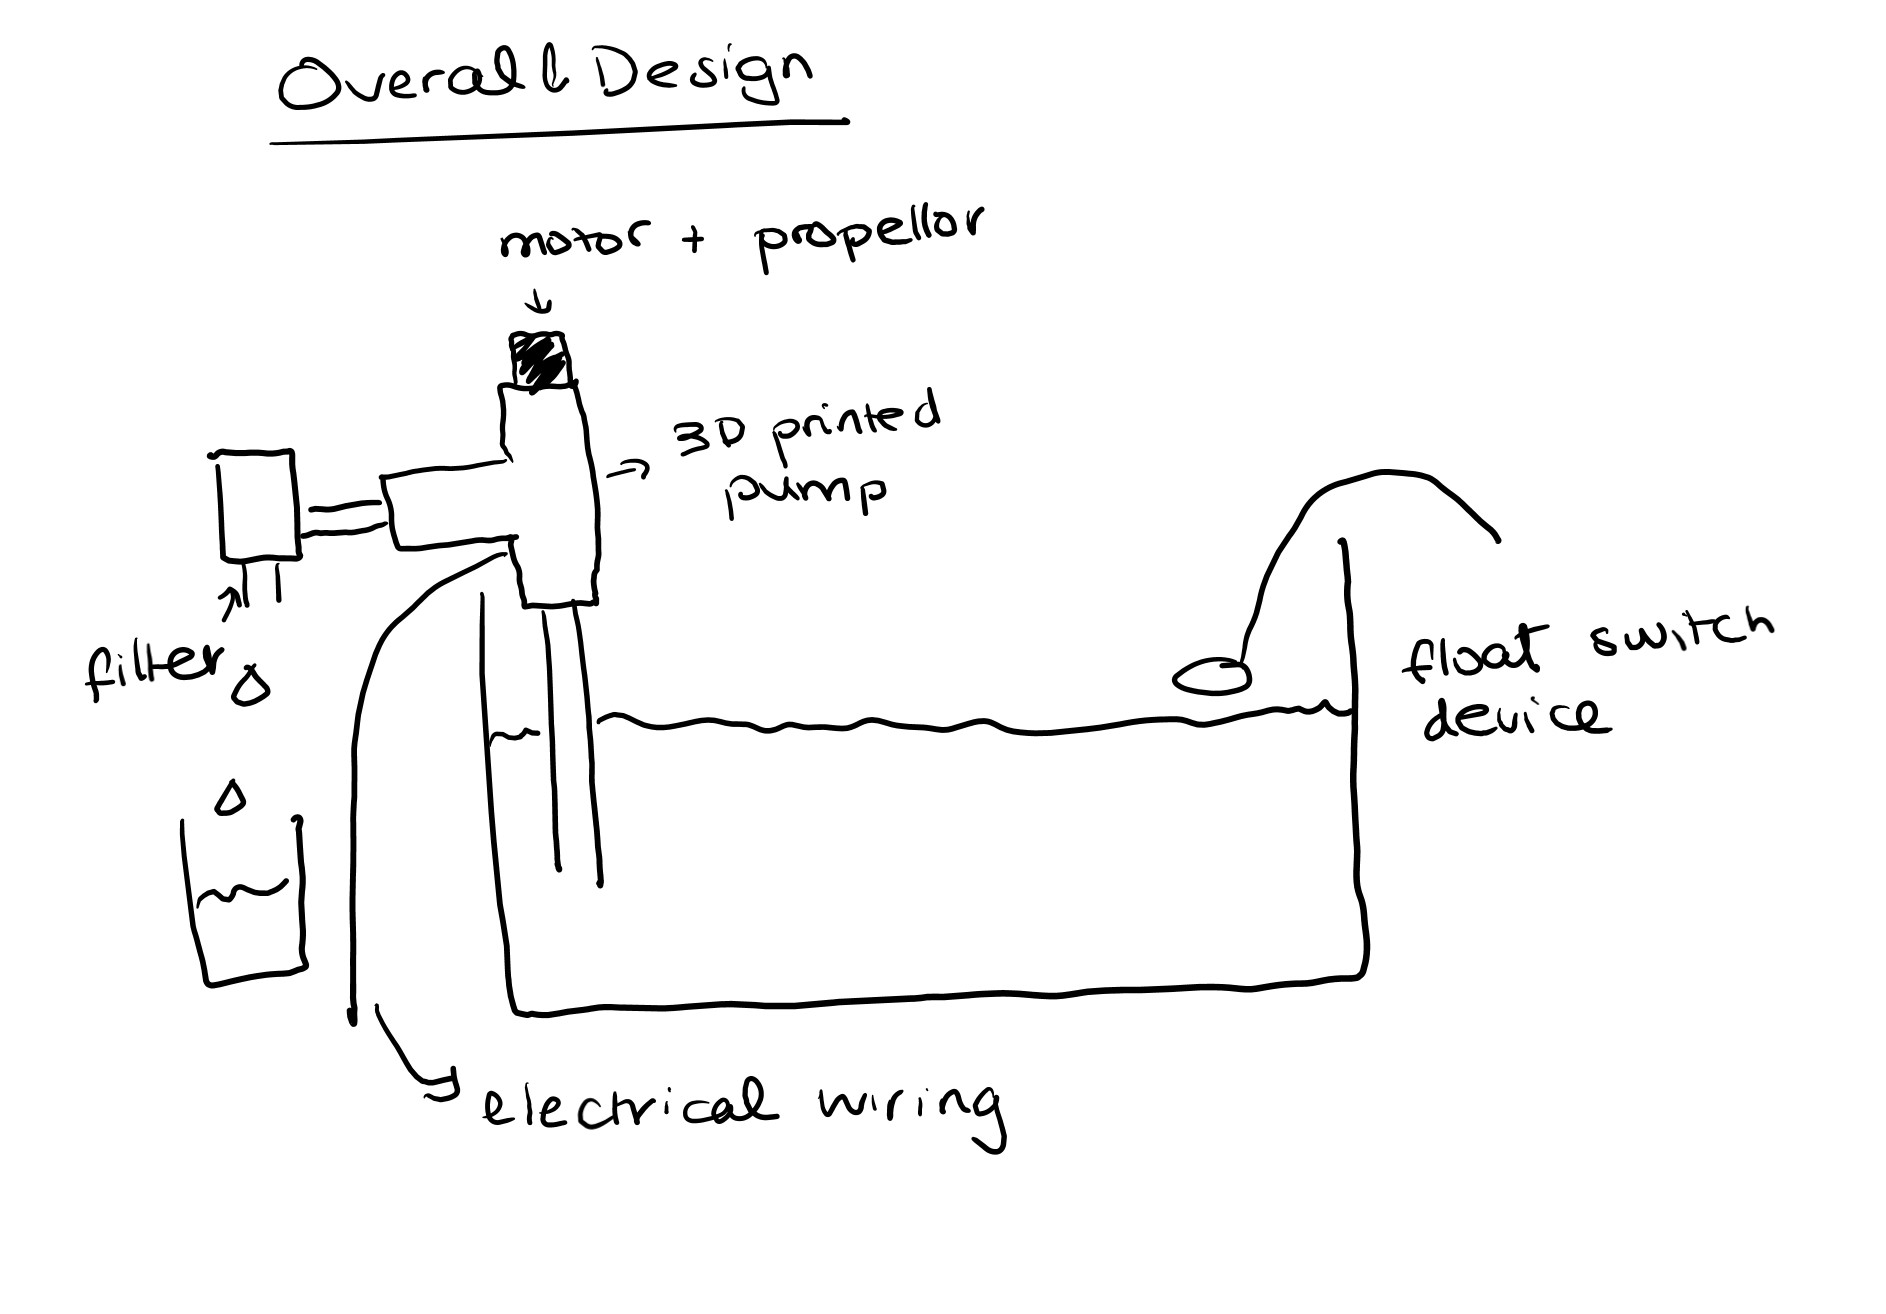 Overall Design
motor + propellor
3D printed
pump
filter
float switch
device
electrical wiring